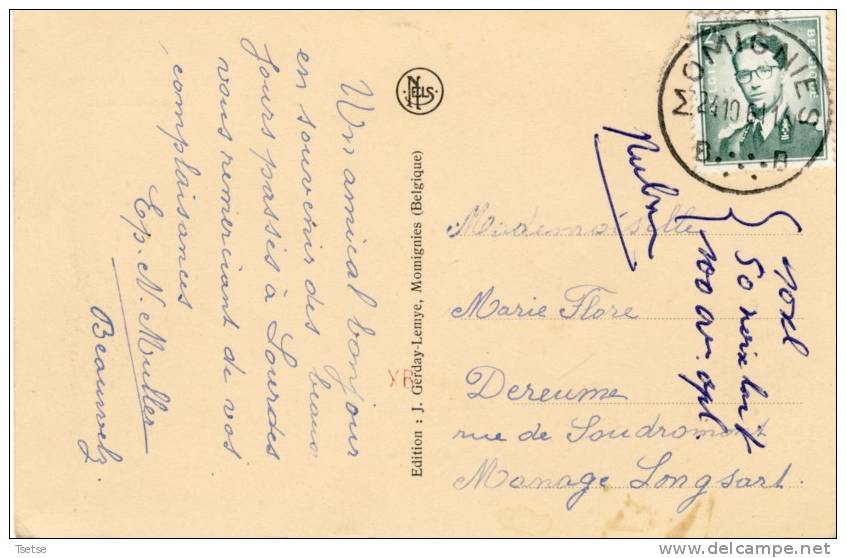 Un amical bonjour
en souvenir des beaux
jours passés à Lourdes
vous remerciant de vos
complaisances
Ep. N. Muller
Beauwelz.
NELS
Edition : J. Gerday-Lemye, Momignies (Belgique)
XR
MOMIGNIES
24 10 61
B B
Mademoiselle
Marie Flore
Dereume
rue de Soudromont
Manage Longsart
50
100 av. apl.
Tsetse
delcampe.net